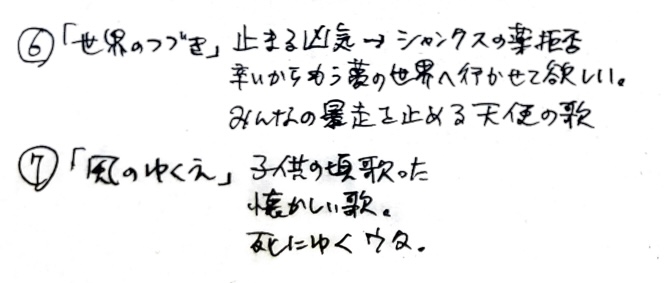 ⑥「世界のつづき」 止まる凶気→シャンクスの薬拒否
辛いからもう夢の世界へ行かせて欲しい。
みんなの暴走を止める天使の歌
⑦「風のゆくえ」 子供の頃歌った
懐かしい歌。
死にゆくウタ。